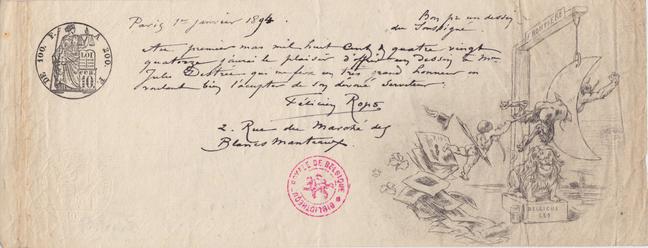 Paris 1er janvier 1894.
Bon pr un dessin
du Soussigné
Au premier mai mil huit cent & quatre vingt
quatorze j'aurai le plaisir d'offrir un dessin à Mr
Jules Destrée qui me fera un très grand honneur en
voulant bien l'accepter de son dévoué Serviteur
Félicien Rops
2. Rue du Marché des
Blancs Manteaux
DE 100. F. A 200. F.
LOI
10
BIBLIOTHÈQUE ROYALE DE BELGIQUE
BELGICUS
LEO